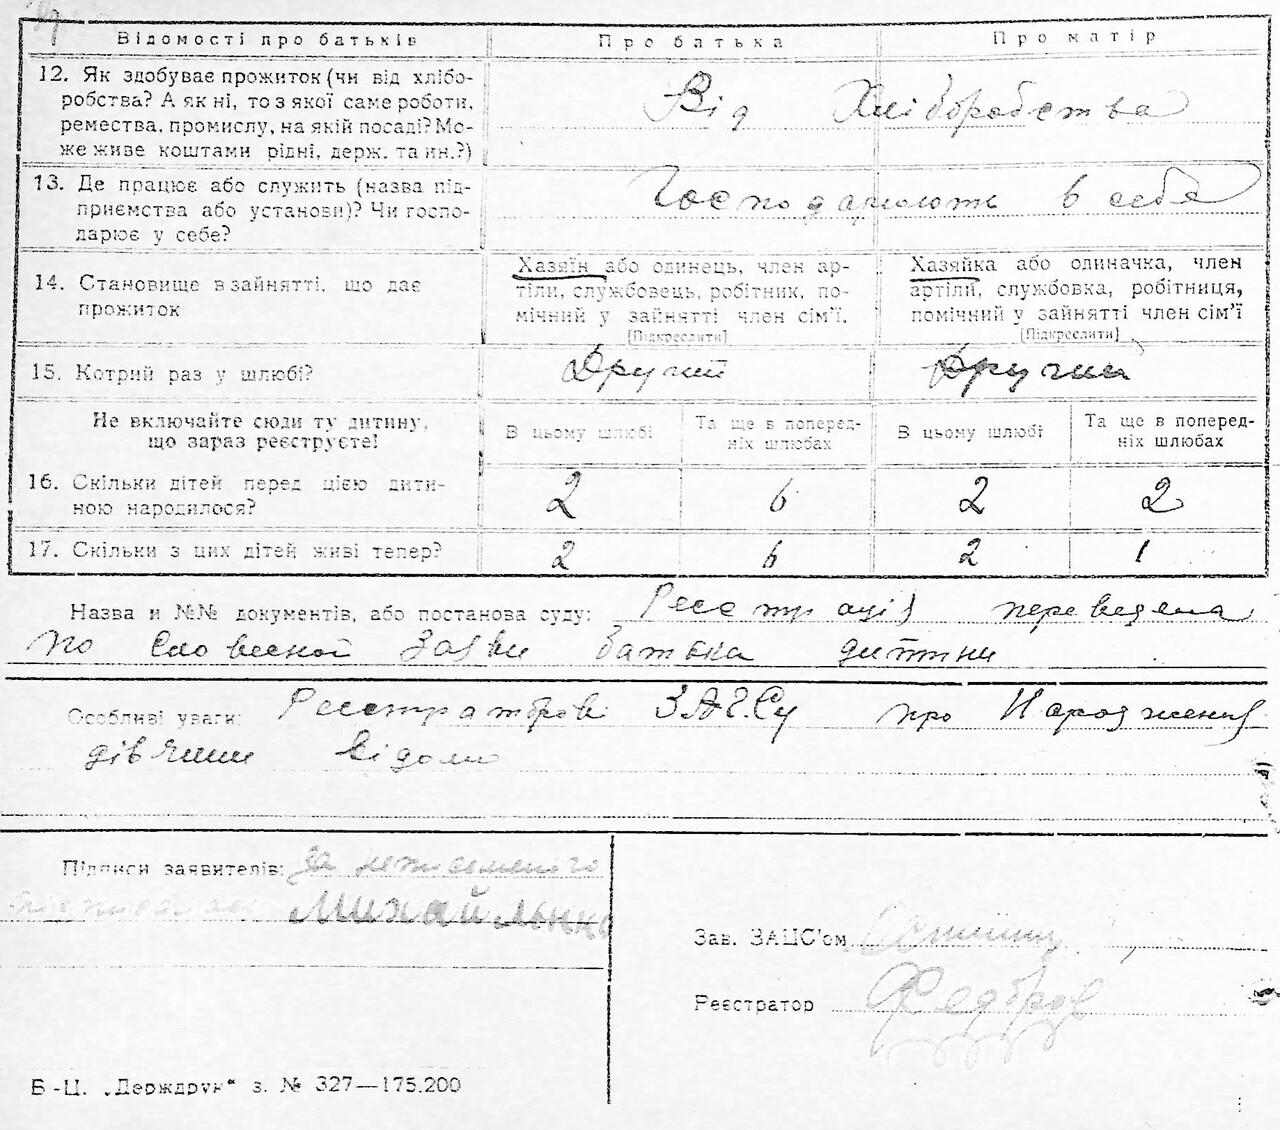 Відомості про батьків Про батька Про матір
12. Як здобуває прожиток (чи від хлібо-
робства? А як ні, то з якої саме роботи,
ремества, промислу, на якій посаді? Мо-
же живе коштами рідні, держ. та ин.?)
Від Хліборобства
13. Де працює або служить (назва під-
приємства або установи)? Чи госпо-
дарює у себе?
Господарюють в себе
14. Становище в зайнятті, що дає
прожиток
Хазяїн або одинець, член ар-
тіли, службовець, робітник, по-
мічний у зайнятті член сім'ї.
[Підкреслити]
Хазяйка або одиначка, член
артіли, службовка, робітниця,
помічний у зайнятті член сім'ї
[Підкреслити]
15. Котрий раз у шлюбі? Другий Другий
Не включайте сюди ту дитину,
що зараз реєструєте!
В цьому шлюбі
Та ще в поперед-
ніх шлюбах
В цьому шлюбі
Та ще в поперед-
ніх шлюбах
16. Скільки дітей перед цією дити-
ною народилося?
2 6 2 2
17. Скільки з цих дітей живі тепер? 2 6 2 1
Назва и №№ документів, або постанова суду: Реєстрація переведена
по словесной заяви батька дитини
Особливі уваги: Реєстраторові ЗАГСу про Народження
дівчини відомо
Підписи заявителів: За неписьменного
Михайленко
Зав. ЗАЦС'ом
Реєстратор Федоров
Б-Ц. „Держдрук“ з. № 327—175.200